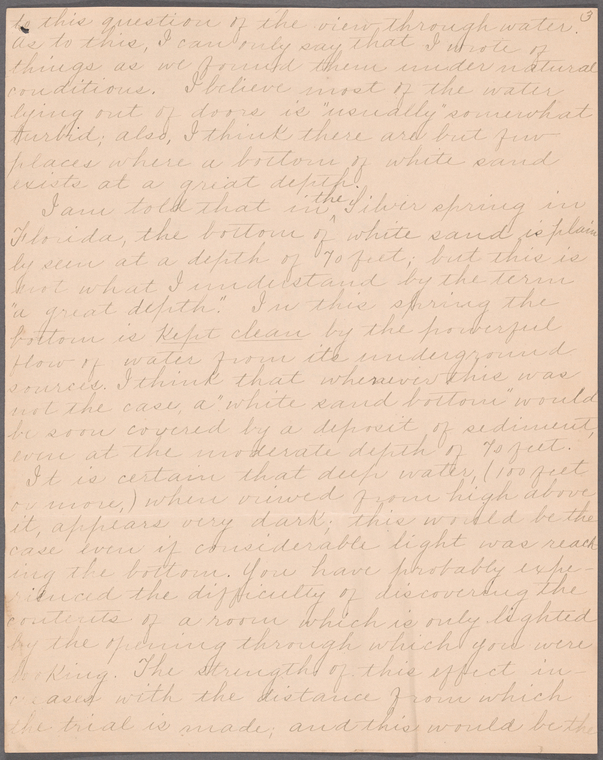 3
to this question of the view through water.
As to this, I can only say that I wrote of
things as we found them under natural
conditions. I believe most of the water
lying out of doors is "usually" somewhat
turbid; also, I think there are but few
places where a bottom of white sand
exists at a great depth.
I am told that in the Silver spring in
Florida, the bottom of white sand is plain
ly seen at a depth of 70 feet; but this is
not what I understand by the term
"a great depth". In this spring the
bottom is kept clean by the powerful
flow of water from its underground
sources. I think that whenever this was
not the case, a "white sand bottom" would
be soon covered by a deposit of sediment,
even at the moderate depth of 70 feet.
It is certain that deep water, (100 feet
or more,) when viewed from high above
it, appears very dark; this would be the
case even if considerable light was reach
ing the bottom. You have probably expe-
rienced the difficulty of discovering the
contents of a room which is only lighted
by the opening through which you were
looking. The strength of this effect in-
creases with the distance from which
the trial is made, and this would be the